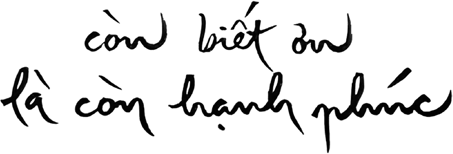 còn biết ơn
là còn hạnh phúc